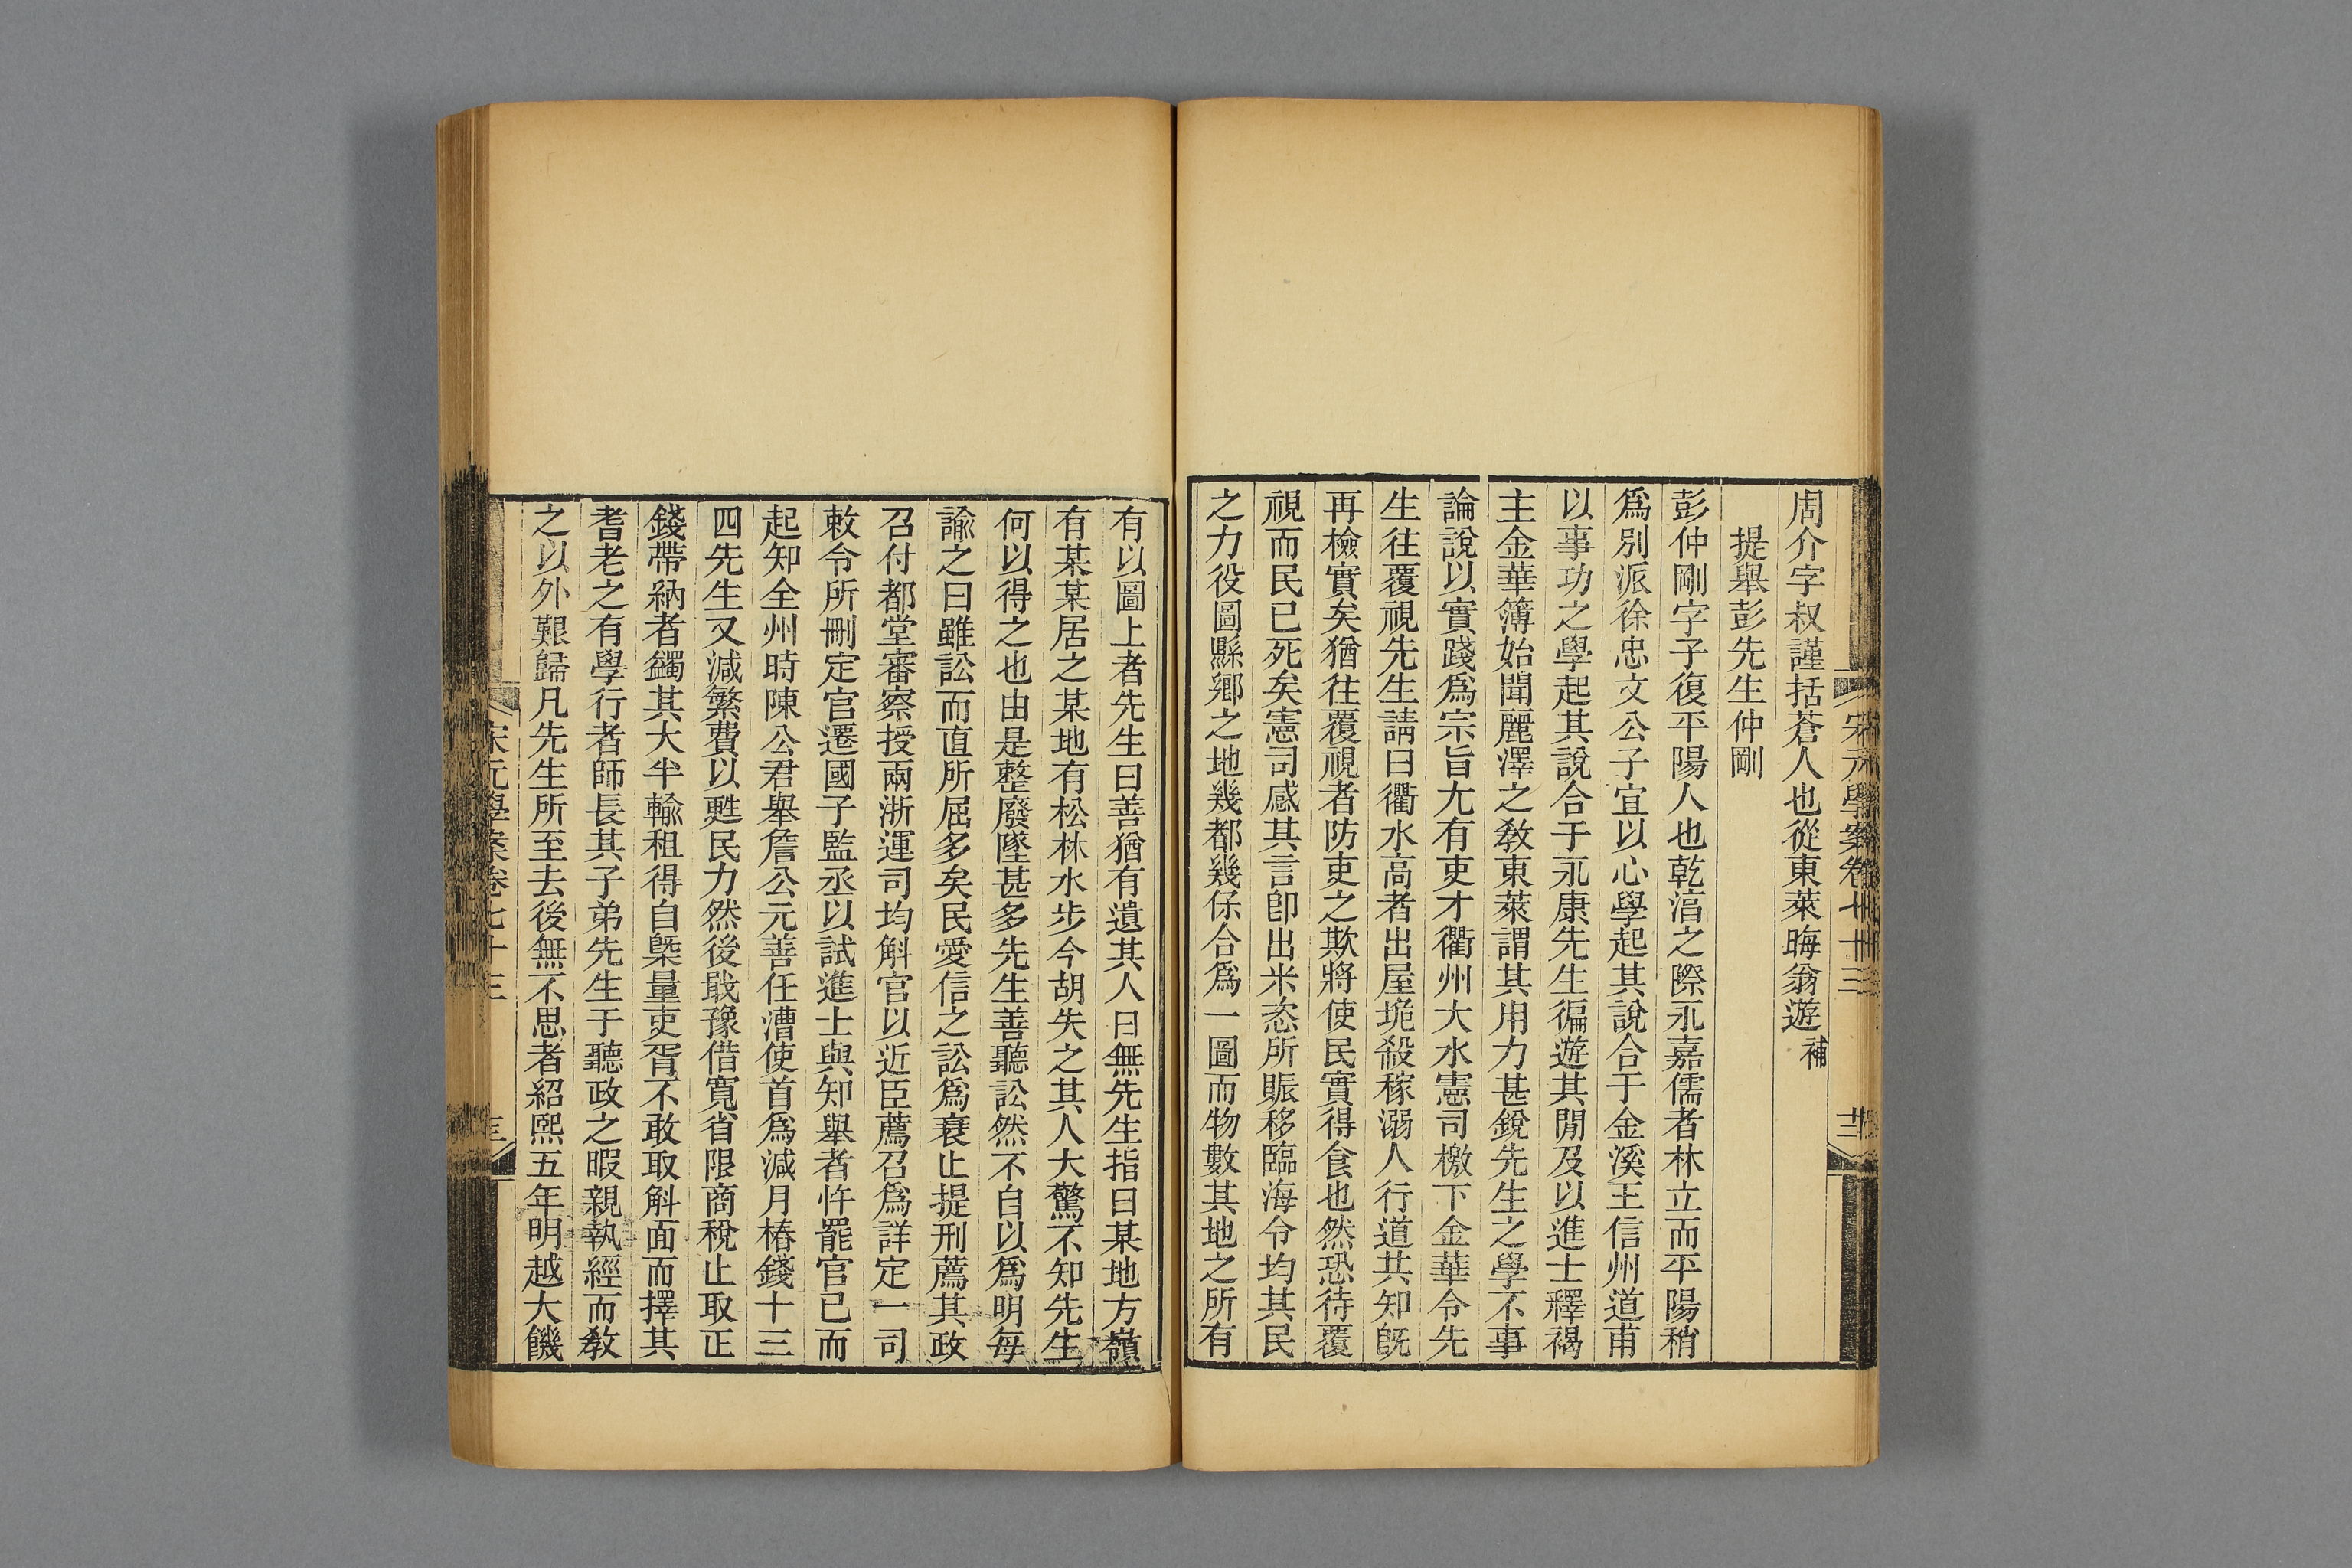 周介字叔謹括蒼人也從東萊晦翁遊補
提舉彭先生仲剛
彭仲剛字子復平陽人也乾湻之際永嘉儒者林立而平陽稍
爲別派徐忠文公子宜以心學起其說合于金溪王信州道甫
以事功之學起其說合于永康先生徧遊其閒及以進士釋褐
主金華簿始聞麗澤之敎東萊謂其用力甚銳先生之學不事
論說以實踐爲宗旨尢有吏才衢州大水憲司檄下金華令先
生往覆視先生請曰衢水高者出屋垝殺稼溺人行道共知旣
再檢實矣猶往覆視者防吏之欺將使民實得食也然恐待覆
視而民已死矣憲司感其言卽出米恣所賑移臨海令均其民
之力役圖縣鄉之地幾都幾保合爲一圖而物數其地之所有
有以圖上者先生曰善猶有遺其人曰無先生指曰某地方嶺
有某某居之某地有松林水步今胡失之其人大驚不知先生
何以得之也由是整廢墜甚多先生善聽訟然不自以爲明每
諭之曰雖訟而直所屈多矣民愛信之訟爲衰止提刑薦其政
召付都堂審察授兩浙運司均斛官以近臣薦召爲詳定一司
敕令所刪定官遷國子監丞以試進士與知舉者忤罷官已而
起知全州時陳公君舉詹公元善任漕使首爲減月樁錢十三
四先生又減繁費以甦民力然後戢豫借寬省限商稅止取正
錢帶納者蠲其大半輸租得自槩量吏胥不敢取斛面而擇其
耆老之有學行者師長其子弟先生于聽政之暇親執經而敎
之以外艱歸凡先生所至去後無不思者紹熙五年明越大饑
宋元學案卷七十三